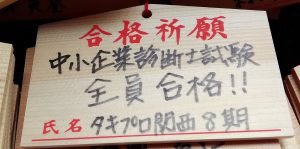 合格祈願
中小企業診断士試験
全員 合格!!
氏名 タキプロ関西8期